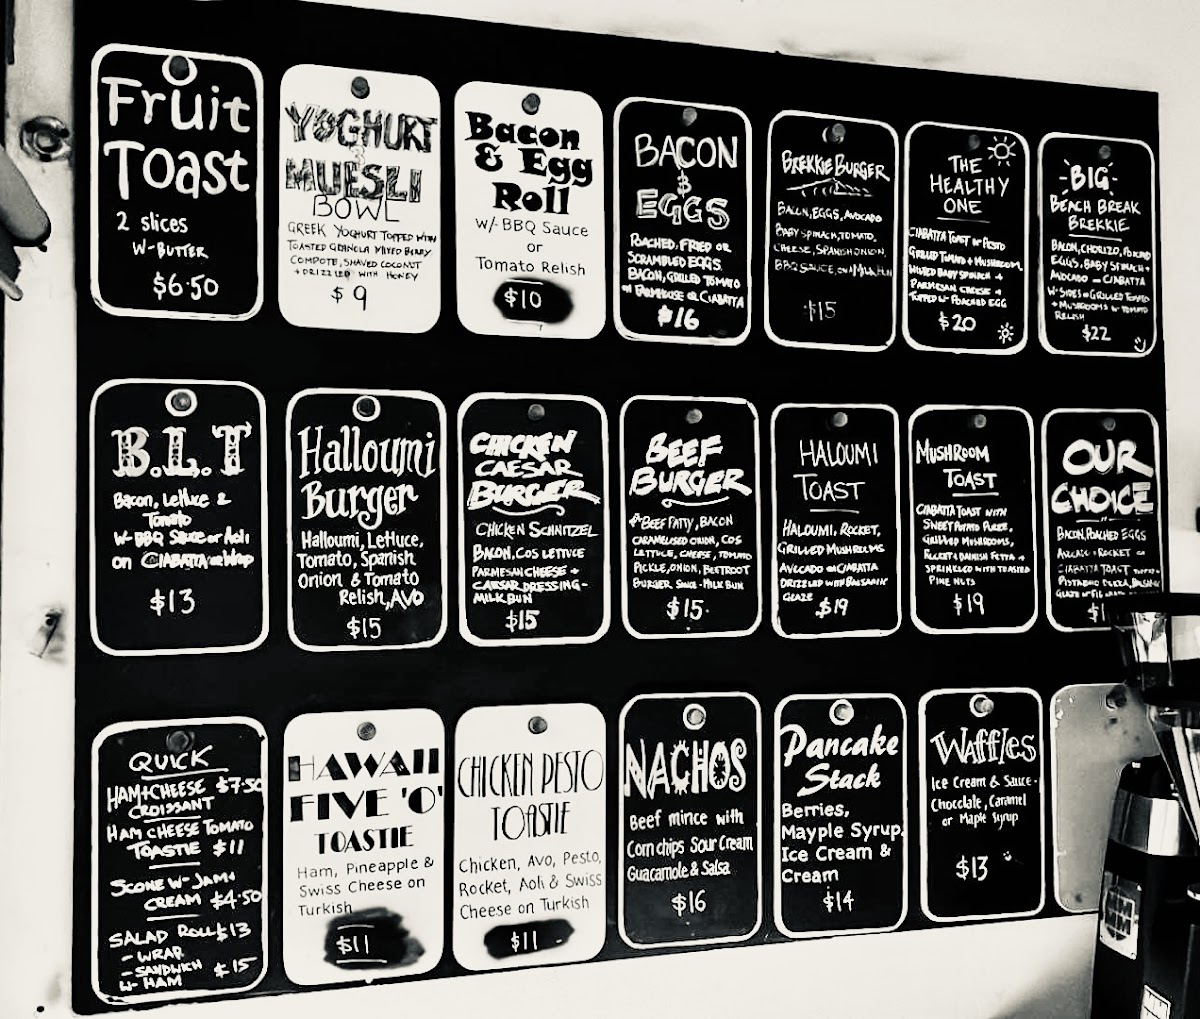 Fruit
Toast
2 slices
W-BUTTER
$6.50
YOGHURT
&
MUESLI
BOWL
GREEK YOGHURT TOPPED WITH
TOASTED GRANOLA MIXED BERRY
COMPOTE, SHAVED COCONUT
+ DRIZZLED WITH HONEY
$9
Bacon
& Egg
Roll
W/-BBQ Sauce
or
Tomato Relish
$10
BACON
&
EGGS
POACHED, FRIED OR
SCRAMBLED EGGS
BACON, GRILLED TOMATO
ON FARMHOUSE OR CIABATTA
$16
BREKKIE BURGER
BACON, EGGS, AVOCADO
BABY SPINACH, TOMATO,
CHEESE, SPANISH ONION,
BBQ SAUCE, ON A MILK BUN
$15
THE
HEALTHY
ONE
CIABATTA TOAST W- PESTO
GRILLED TOMATO + MUSHROOM,
WILTED BABY SPINACH +
PARMESAN CHEESE +
TOPPED W- POACHED EGG
$20
BIG
BEACH BREAK
BREKKIE
BACON, CHORIZO, POACHED
EGGS, BABY SPINACH +
AVOCADO - CIABATTA
W- SIDES - GRILLED TOMATO
+ MUSHROOMS W- TOMATO
RELISH
$22
B.L.T
Bacon, Lettuce &
Tomato
W- BBQ Sauce or Aoli
on CIABATTA or Wrap
$13
Halloumi
Burger
Halloumi, Lettuce,
Tomato, Spanish
Onion & Tomato
Relish, AVO
$15
CHICKEN
CAESAR
BURGER
CHICKEN SCHNITZEL
BACON, COS LETTUCE
PARMESAN CHEESE +
CAESAR DRESSING-
MILK BUN
$15
BEEF
BURGER
BEEF PATTY, BACON
CARAMELISED ONION, COS
LETTUCE, CHEESE, TOMATO
PICKLE, ONION, BEETROOT
BURGER SAUCE - MILK BUN
$15
HALOUMI
TOAST
HALOUMI, ROCKET,
GRILLED MUSHROOMS
AVOCADO ON CIABATTA
DRIZZLED WITH BALSAMIC
GLAZE
$19
MUSHROOM
TOAST
CIABATTA TOAST WITH
SWEET POTATO PUREE,
GRILLED MUSHROOMS,
ROCKET + DANISH FETTA +
SPRINKLED WITH TOASTED
PINE NUTS
$19
OUR
CHOICE
BACON, POACHED EGGS
AVOCADO + ROCKET ON
CIABATTA TOAST
PISTACHIO
$1
QUICK
HAM+CHEESE $7.50
CROISSANT
HAM CHEESE TOMATO
TOASTIE $11
SCONE W- JAM+
CREAM $4.50
SALAD ROLL $13
- WRAP
- SANDWICH
W- HAM $15
HAWAII
FIVE 'O'
TOASTIE
Ham, Pineapple &
Swiss Cheese on
Turkish
$11
CHICKEN PESTO
TOASTIE
Chicken, Avo, Pesto,
Rocket, Aoli & Swiss
Cheese on Turkish
$11
NACHOS
Beef mince with
Corn chips Sour Cream
Guacamole & Salsa
$16
Pancake
Stack
Berries,
Mayple Syrup,
Ice Cream &
Cream
$14
Waffles
Ice Cream & Sauce-
Chocolate, Caramel
or Maple Syrup
$13